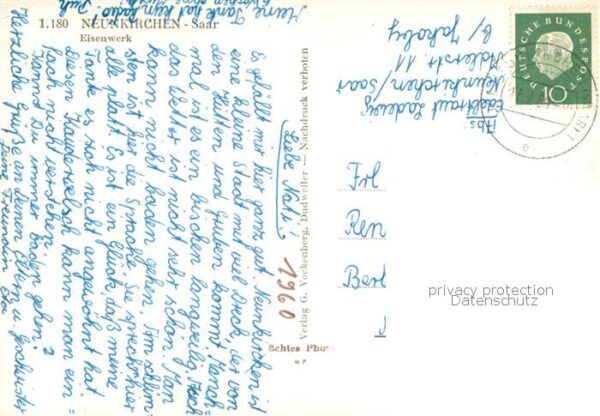 1.180 NEUNKIRCHEN - Saar
Eisenwerk
Liebe Nati!
Es gefällt mir hier ganz gut. Neunkirchen ist
eine kleine Stadt mit viel Dreck, der von
den Hütten und Gruben kommt. Manch-
mal ist es ein bischen langweilig, doch
das Wetter ist nicht sehr schön. Man
kann nicht baden gehen. Am schlim-
sten ist hier die Sprache. Sie sprechen hier
alle platt. Es ist ein Glück, daß meine
Tante es sich nicht angewöhnt hat.
Diesen Kauderwelsch kann man ein-
fach nicht verstehen.
Kannst Du immer baden gehen?
Herzliche Grüße an Deinen Eltern u. Geschwister
Deine Freundin
Meine Tante hat kein Radio
Verlag G. Vockenberg, Dudweiler — Nachdruck verboten
1960
Echtes Pho
Abs:
Edeltraut Ludewig
Neunkirchen/Saar
Adlerstr. 11
b/ Jakoby
DEUTSCHE BUNDESPOST
10
e
Frl
Ren
Berl
privacy protection
Datenschutz